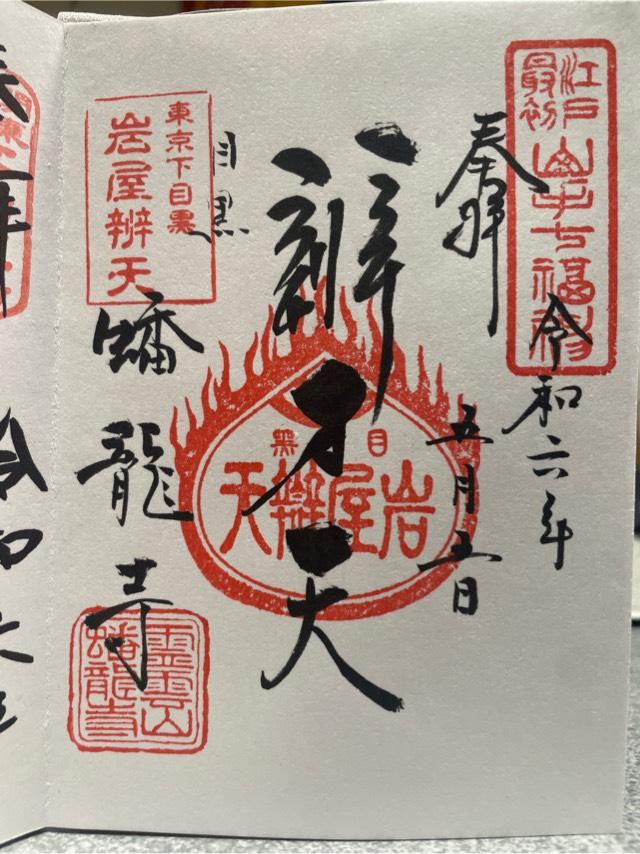 江戸最初
山手七福神
奉拝
令和六年
五月五日
辨才天
目黒
岩屋辨天
東京下目黒
岩屋辨天
目黒
蟠龍寺
霊雲山
蟠龍寺